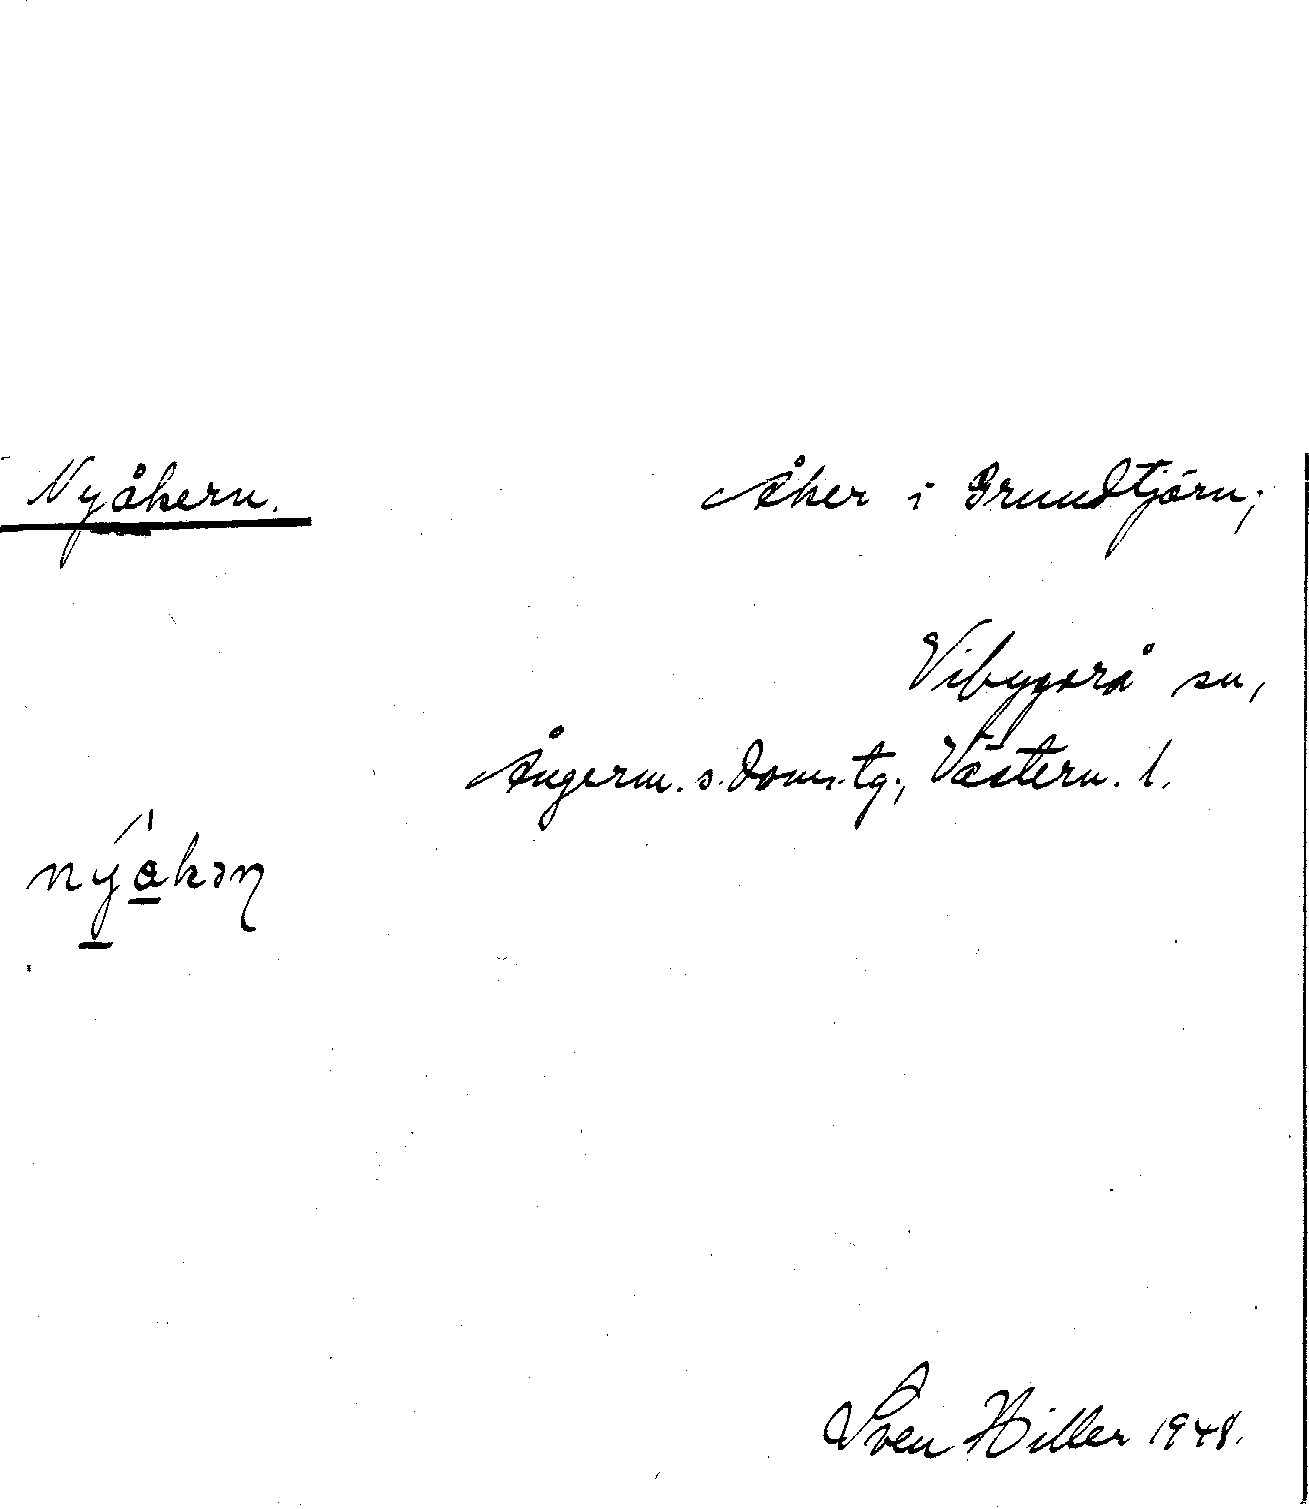 Nyåkern.
Åker i Grundtjärn;
Vibyggerå sn,
Ångerm. s. doms. tg., Västern. l.
Sven Hiller 1948.